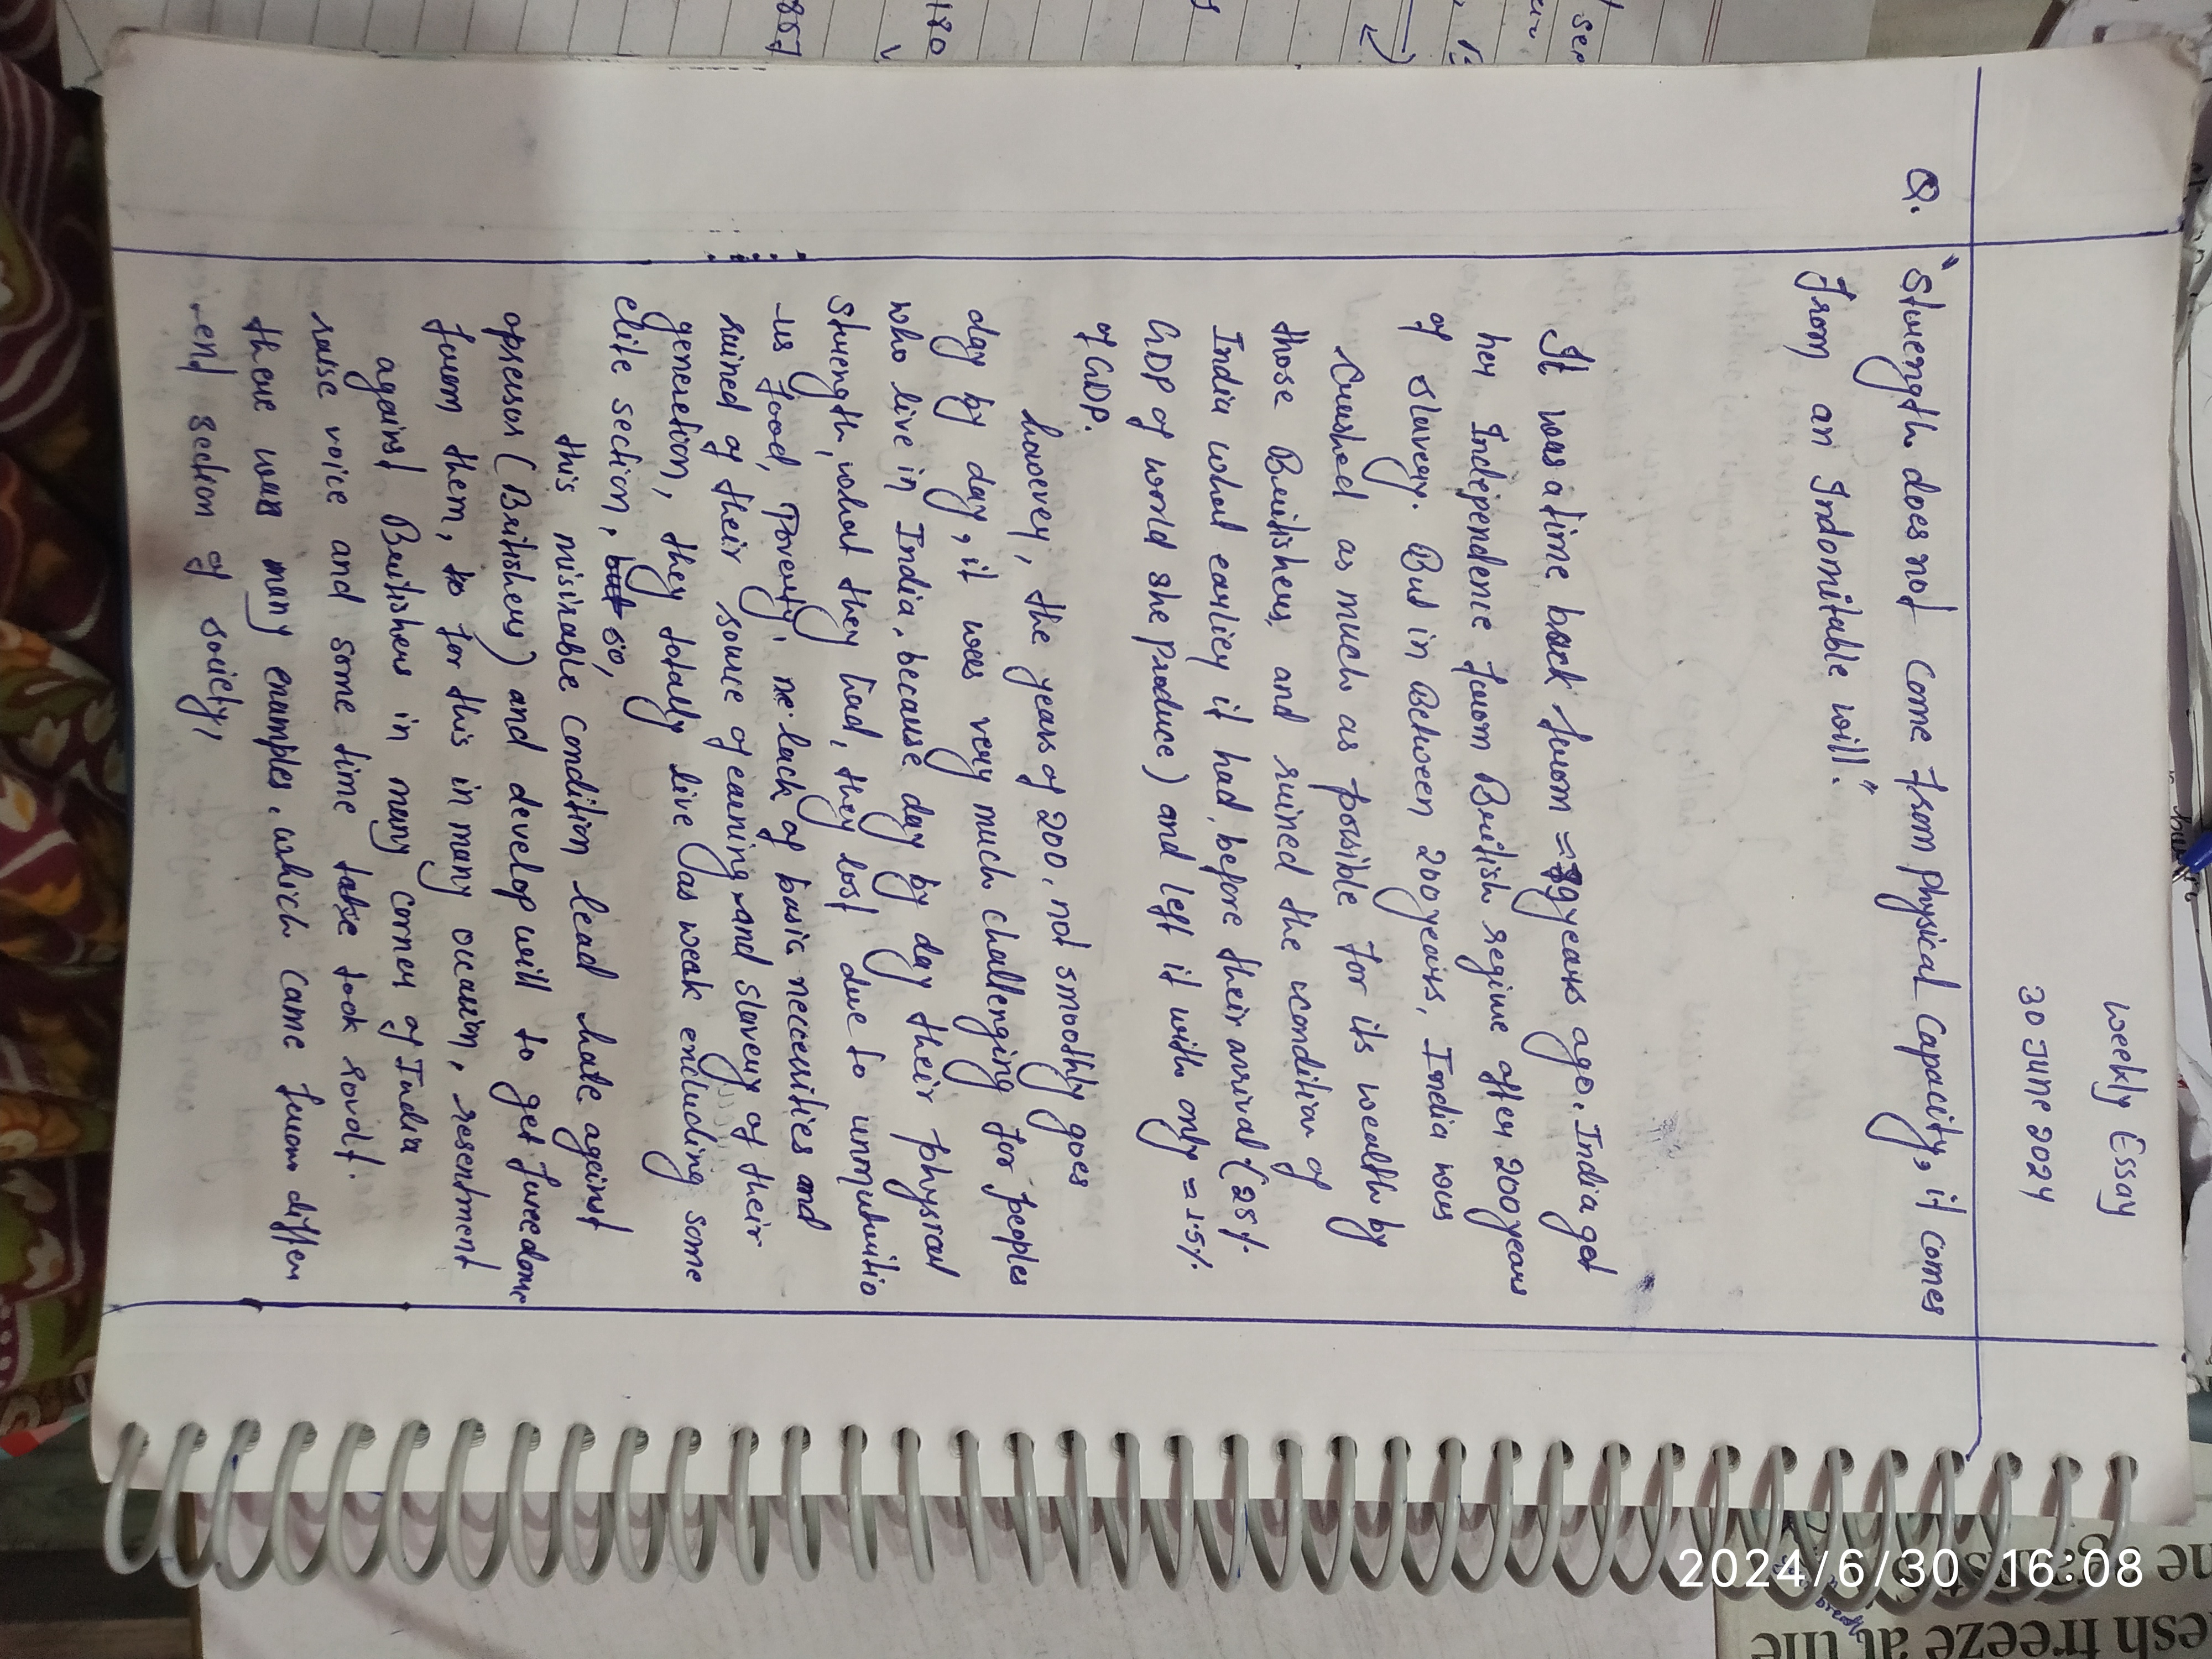 Weekly Essay
30 June 2024
Q. "Strength does not come from physical capacity, it comes
from an Indomitable will."
It was a time back from ≈ 79 years ago. India get
her Independence from British regime after 200 years
of slavery. But in between 200 years, India was
Crushed as much as possible for its wealth by
those Britishers, and ruined the condition of
India what earlier it had before their arrival (25%
GDP of world she produce) and left it with only ≈ 1.5%
of GDP.
however, the years of 200, not smoothly goes
day by day, it was very much challenging for peoples
who live in India, because day by day their physical
strength, what they had, they lost due to unnutritio
-us food, Poverty, lack of basic necessities and
ruined of their source of earning and slavery of their
generation, they totally live as weak enduding some
elite section, but so,
this misirable condition lead hate against
opressor (Britishers) and develop will to get freedom
from them, to for this in many occasion, resentment
against Britishers in many corner of India
raise voice and some time take took
there was many examples, which came from differ
-ent section of society,
2024/6/30 16:08